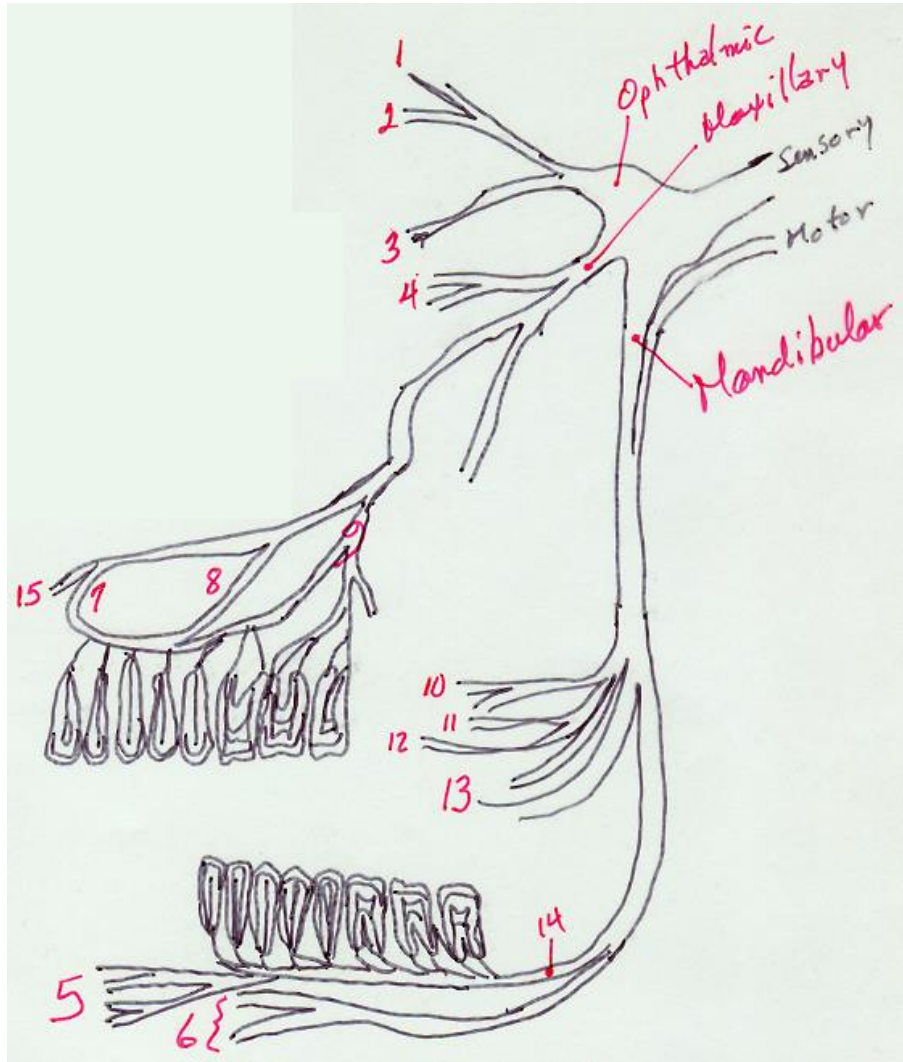 1
Ophthalmic
Maxillary
2
Sensory
3
Motor
4
Mandibular
9
15
7
8
10
11
12
13
14
5
6 {